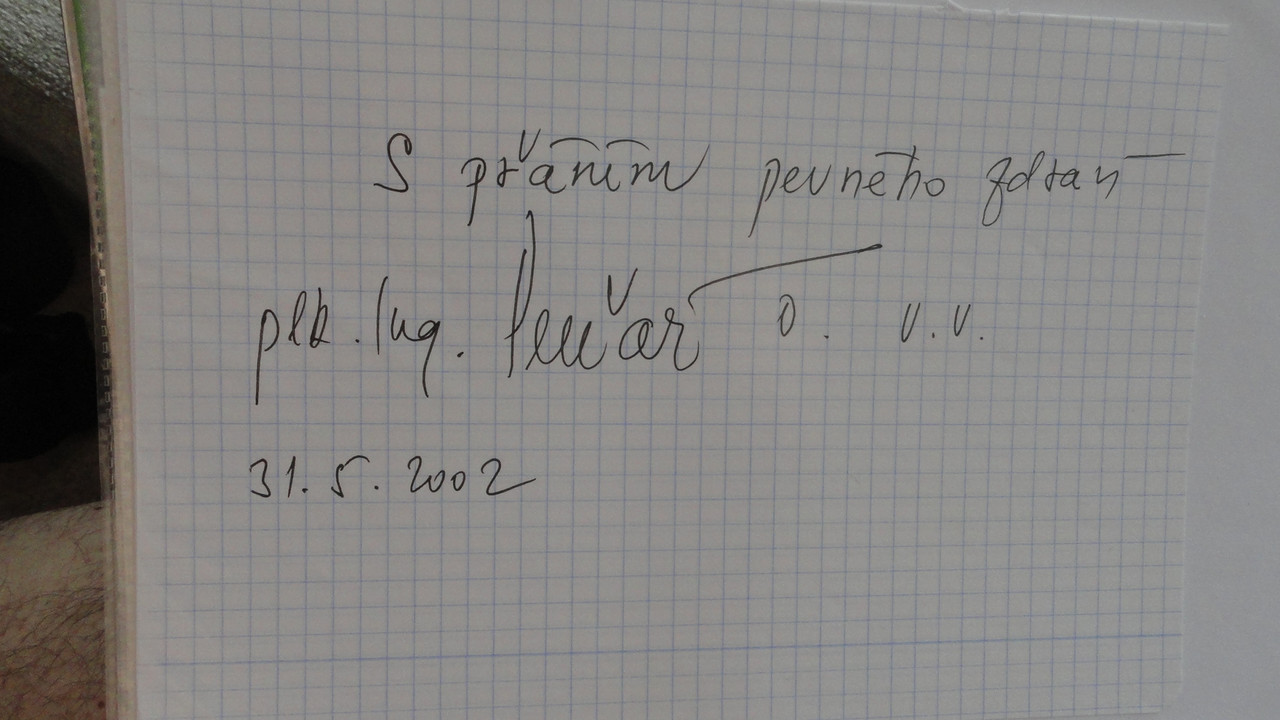 S přáním pevného zdraví
plk. Ing. O. v.v.
31. 5. 2002